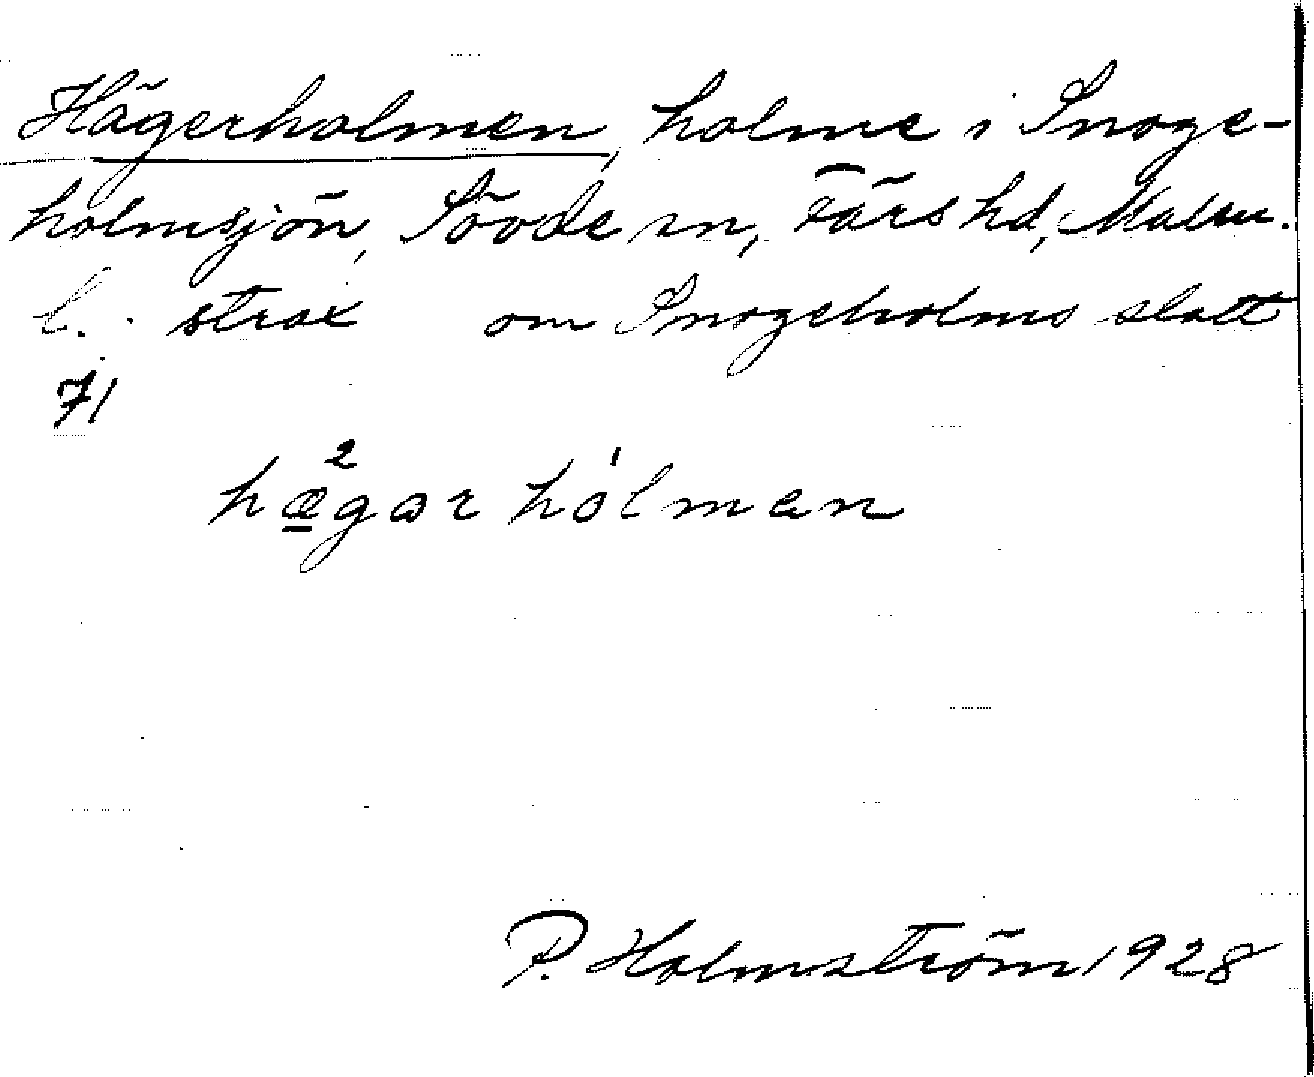 Hägerholmen, holme i Snoge-
holmsjön, Sövde sn, Färs hd, Malm.
l. strax om Snogeholms slott
71
hægər hòlmen
P. Holmström 1928